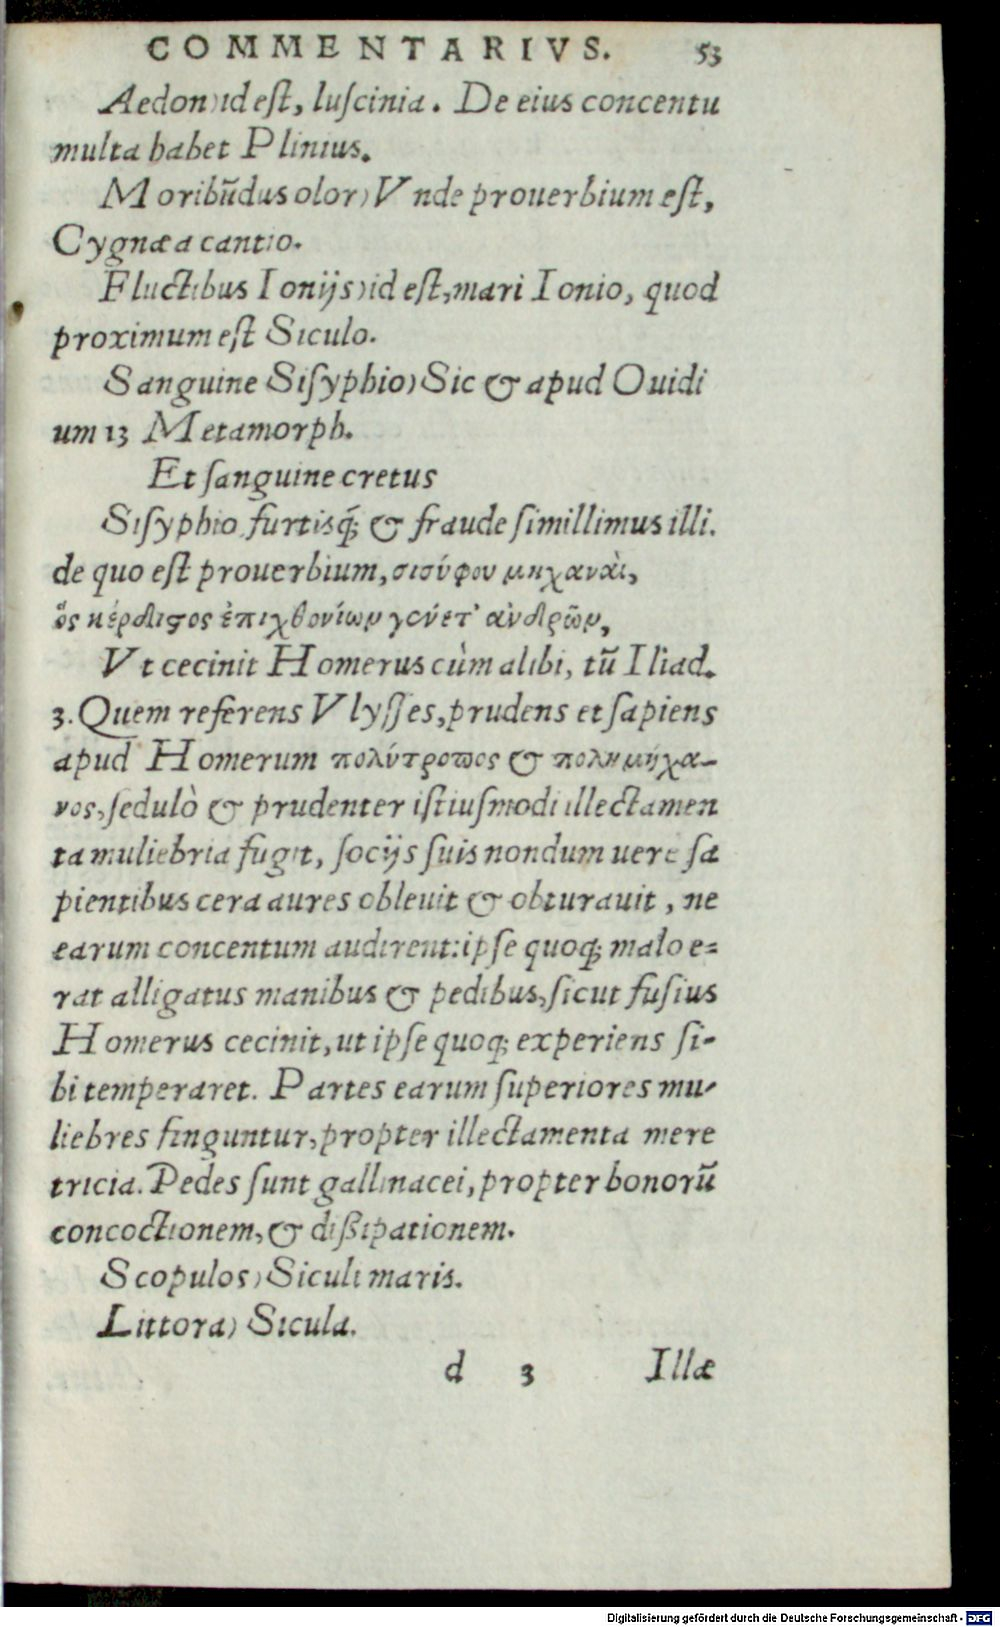 COMMENTARIVS. 53
Aedon) id eſt, luſcinia. De eius concentu
multa habet Plinius.
Moribūdus olor) Vnde prouerbium eſt,
Cygnæa cantio.
Fluctibus Ionijs) id eſt, mari Ionio, quod
proximum eſt Siculo.
Sanguine Siſyphio) Sic & apud Ouidi
um 13 Metamorph.
Et ſanguine cretus
Siſyphio, furtisq́; & fraude ſimillimus illi.
de quo eſt prouerbium, σισύφου μηχαναὶ,
ὅς κέρδιϛος ἐπιχθονίων γένετ' ἀνδρῶν,
Vt cecinit Homerus cùm alibi, tū Iliad.
3. Quem referens Vlyſſes, prudens et ſapiens
apud Homerum πολύτροπος & πολημήχα-
νος, ſedulò & prudenter iſtiuſmodi illectamen
ta muliebria fugit, ſocijs ſuis nondum uere ſa
pientibus cera aures obleuit & obturauit, ne
earum concentum audirent: ipſe quoq; malo e=
rat alligatus manibus & pedibus, ſicut fuſius
Homerus cecinit, ut ipſe quoq; experiens ſi-
bi temperaret. Partes earum ſuperiores mu-
liebres finguntur, propter illectamenta mere
tricia. Pedes ſunt gallinacei, propter bonorū
concoctionem, & diſsipationem.
Scopulos) Siculi maris.
Littora) Sicula.
d 3 Illæ
Digitalisierung gefördert durch die Deutsche Forschungsgemeinschaft - DFG